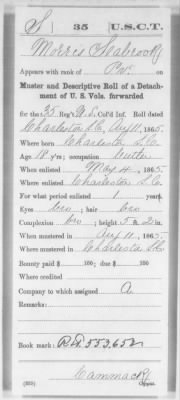 S | 35 | U.S.C.T.
Morris Seabrook
Appears with rank of Pvt. on
Muster and Descriptive Roll of a Detach-
ment of U. S. Vols. forwarded
for the 35 Reg't U.S. Col'd Inf. Roll dated
Charleston S.C., Aug 11, 1865.
Where born Charleston, S.C.
Age 18 y'rs; occupation
When enlisted May 4, 1865.
Where enlisted Charleston S.C.
For what period enlisted 1 years.
Eyes bro; hair bro
Complexion bro; height 5 ft. 2 in.
When mustered in Aug 11, 1865.
Where mustered in Charleston S.C.
Bounty paid $ 100; due $ 100
Where credited
Company to which assigned A
Remarks:
Book mark: R.&P. 553,652
Cammack
(339) Copyist.